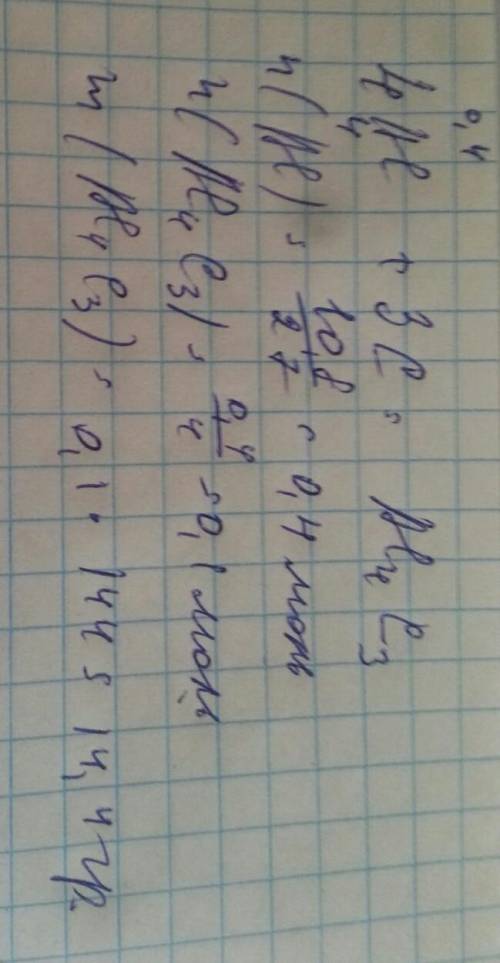 0,4
4Al + 3C = Al4C3
4
n(Al) = 10,8/27 = 0,4 моль
n(Al4C3) = 0,4/4 = 0,1 моль
m(Al4C3) = 0,1 · 144 = 14,4 гр.